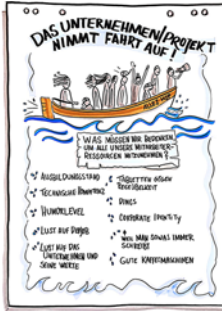 DAS UNTERNEHMEN/PROJEKT
NIMMT FAHRT AUF!
WAS MÜSSEN WIR BEDENKEN,
UM ALLE UNSERE MITARBEITER-
RESSOURCEN MITZUNEHMEN?
AUSBILDUNGSSTAND
TECHNISCHE KOMPETENZ
HUMORLEVEL
LUST AUF
LUST AUF DAS
UNTERNEHMEN UND
SEINE WERTE
TABLETTEN GEGEN
DINGS
CORPORATE IDENTITY
MAN SOWAS IMMER
SCHREIBT
GUTE KAFFEEMASCHINEN